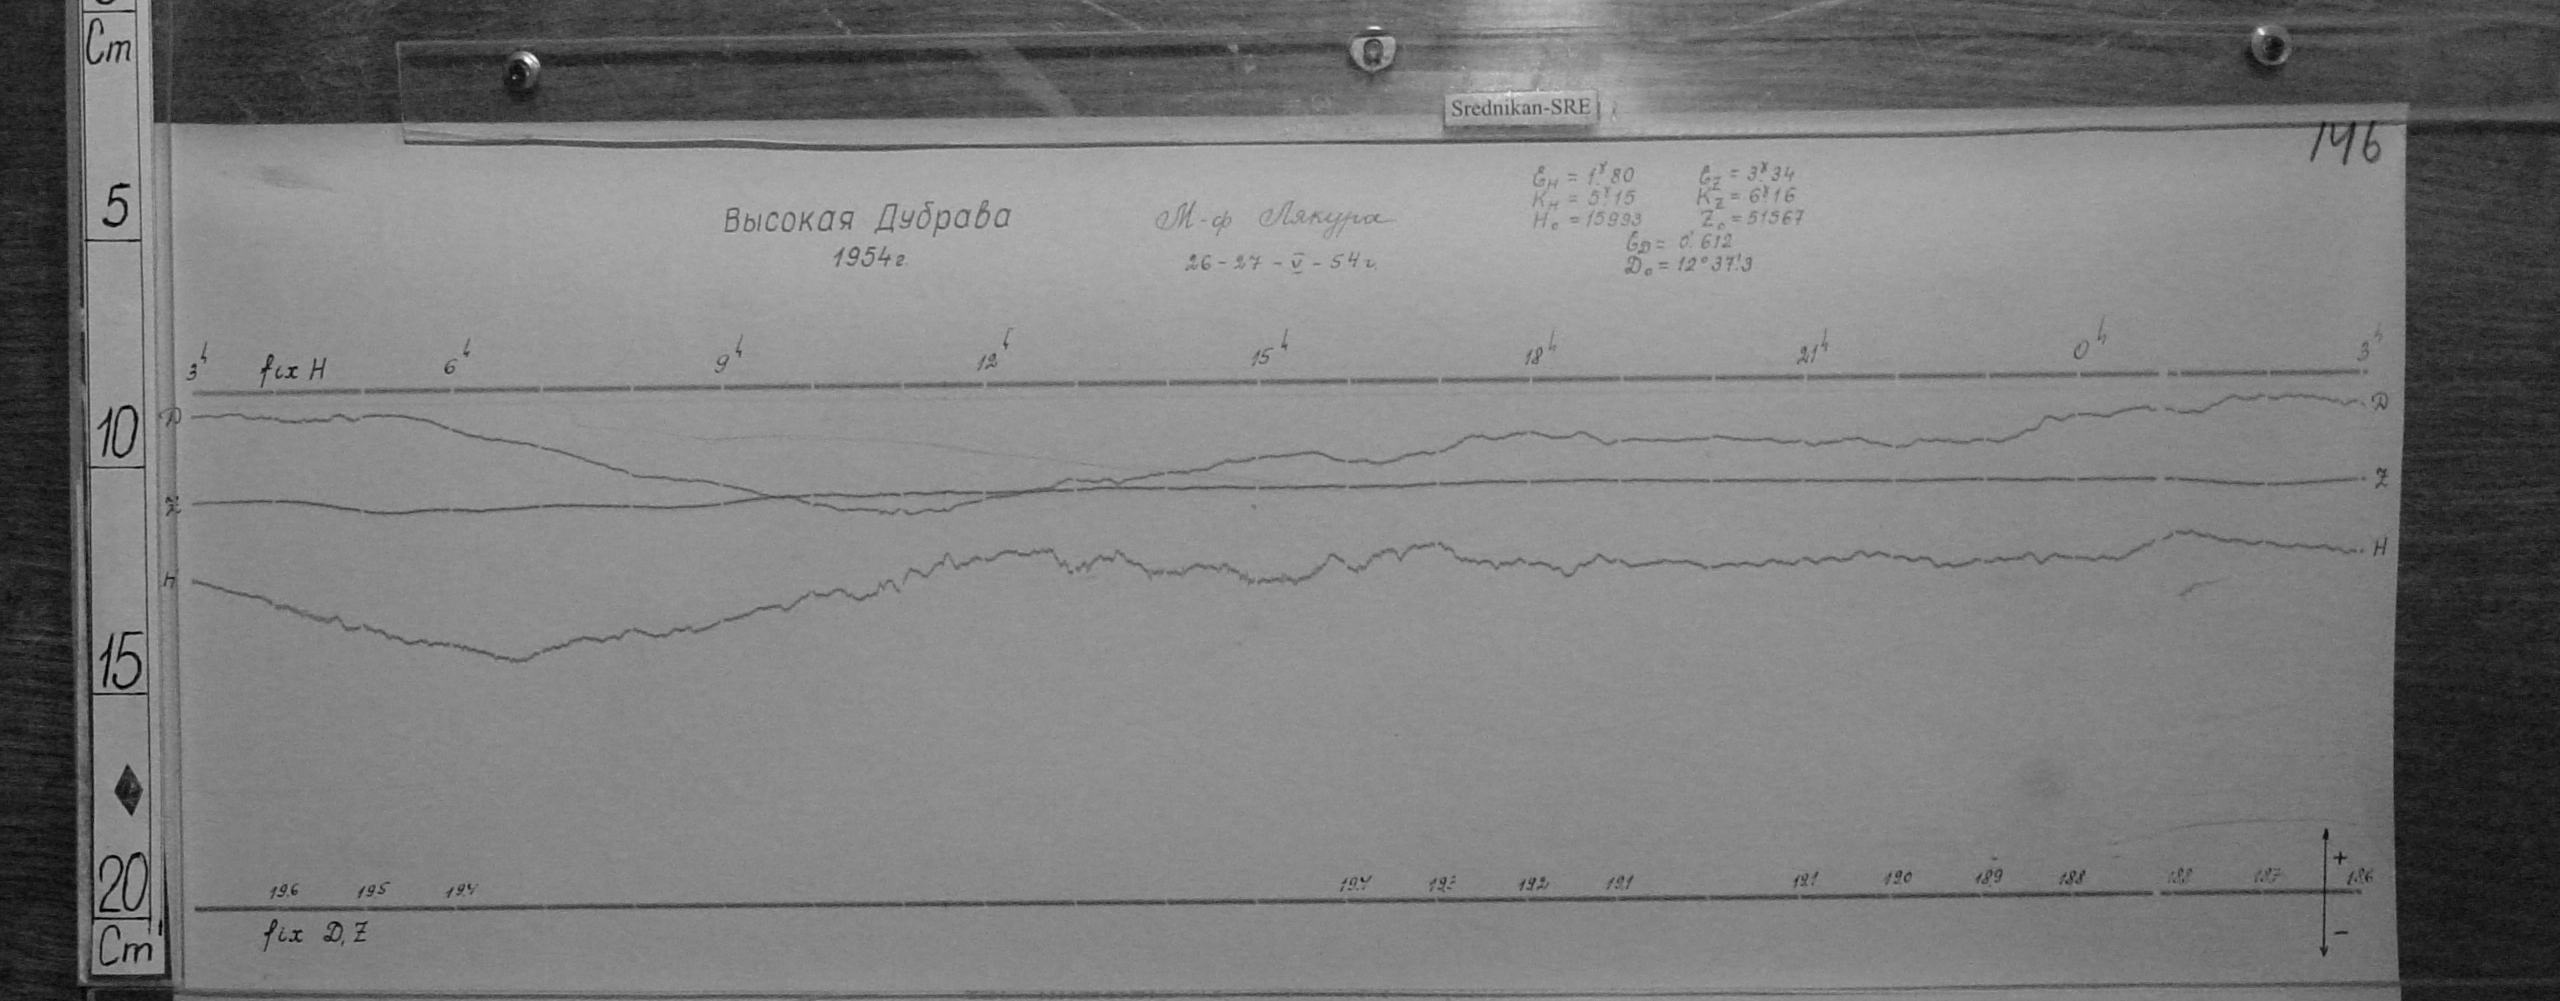 Cm
5
10
15
20
Cm
Srednikan-SRE
146
Высокая Дубрава
1954г.
М-ф Лякура
26-27-V-54г.
ε_H = 1.ˠ80 ε_Z = 3.ˠ34
K_H = 5.ˠ15 K_Z = 6.ˠ16
H₀ = 15993 Z₀ = 51567
ε_D = 0.'612
D₀ = 12°37.'3
3ʰ fix H 6ʰ 9ʰ 12ʰ 15ʰ 18ʰ 21ʰ 0ʰ 3ʰ
D D
Z Z
H H
+
19.6 19.5 19.4 19.4 19.2 19.1 19.1 19.0 18.9 18.8 18.8 18.7 18.6
fix D, Z
-